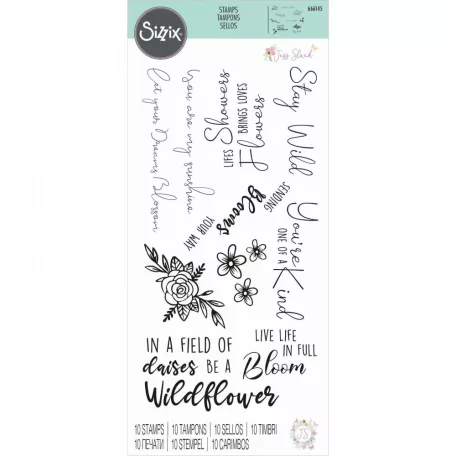 Sizzix
STAMPS
TAMPONS
SELLOS
666145
Jess Slack
Let your Dreams Blossom
You are my sunshine
LIFES Showers
BRINGS LOVES
Flowers
Stay Wild
SENDING
Blooms
YOUR WAY
You're
ONE OF A
Kind
IN A FIELD OF
daises BE A
Wildflower
LIVE LIFE
IN FULL
Bloom
10 STAMPS | 10 TAMPONS | 10 SELLOS | 10 TIMBRI
10 ПЕЧАТИ | 10 STEMPEL | 10 CARIMBOS
JS